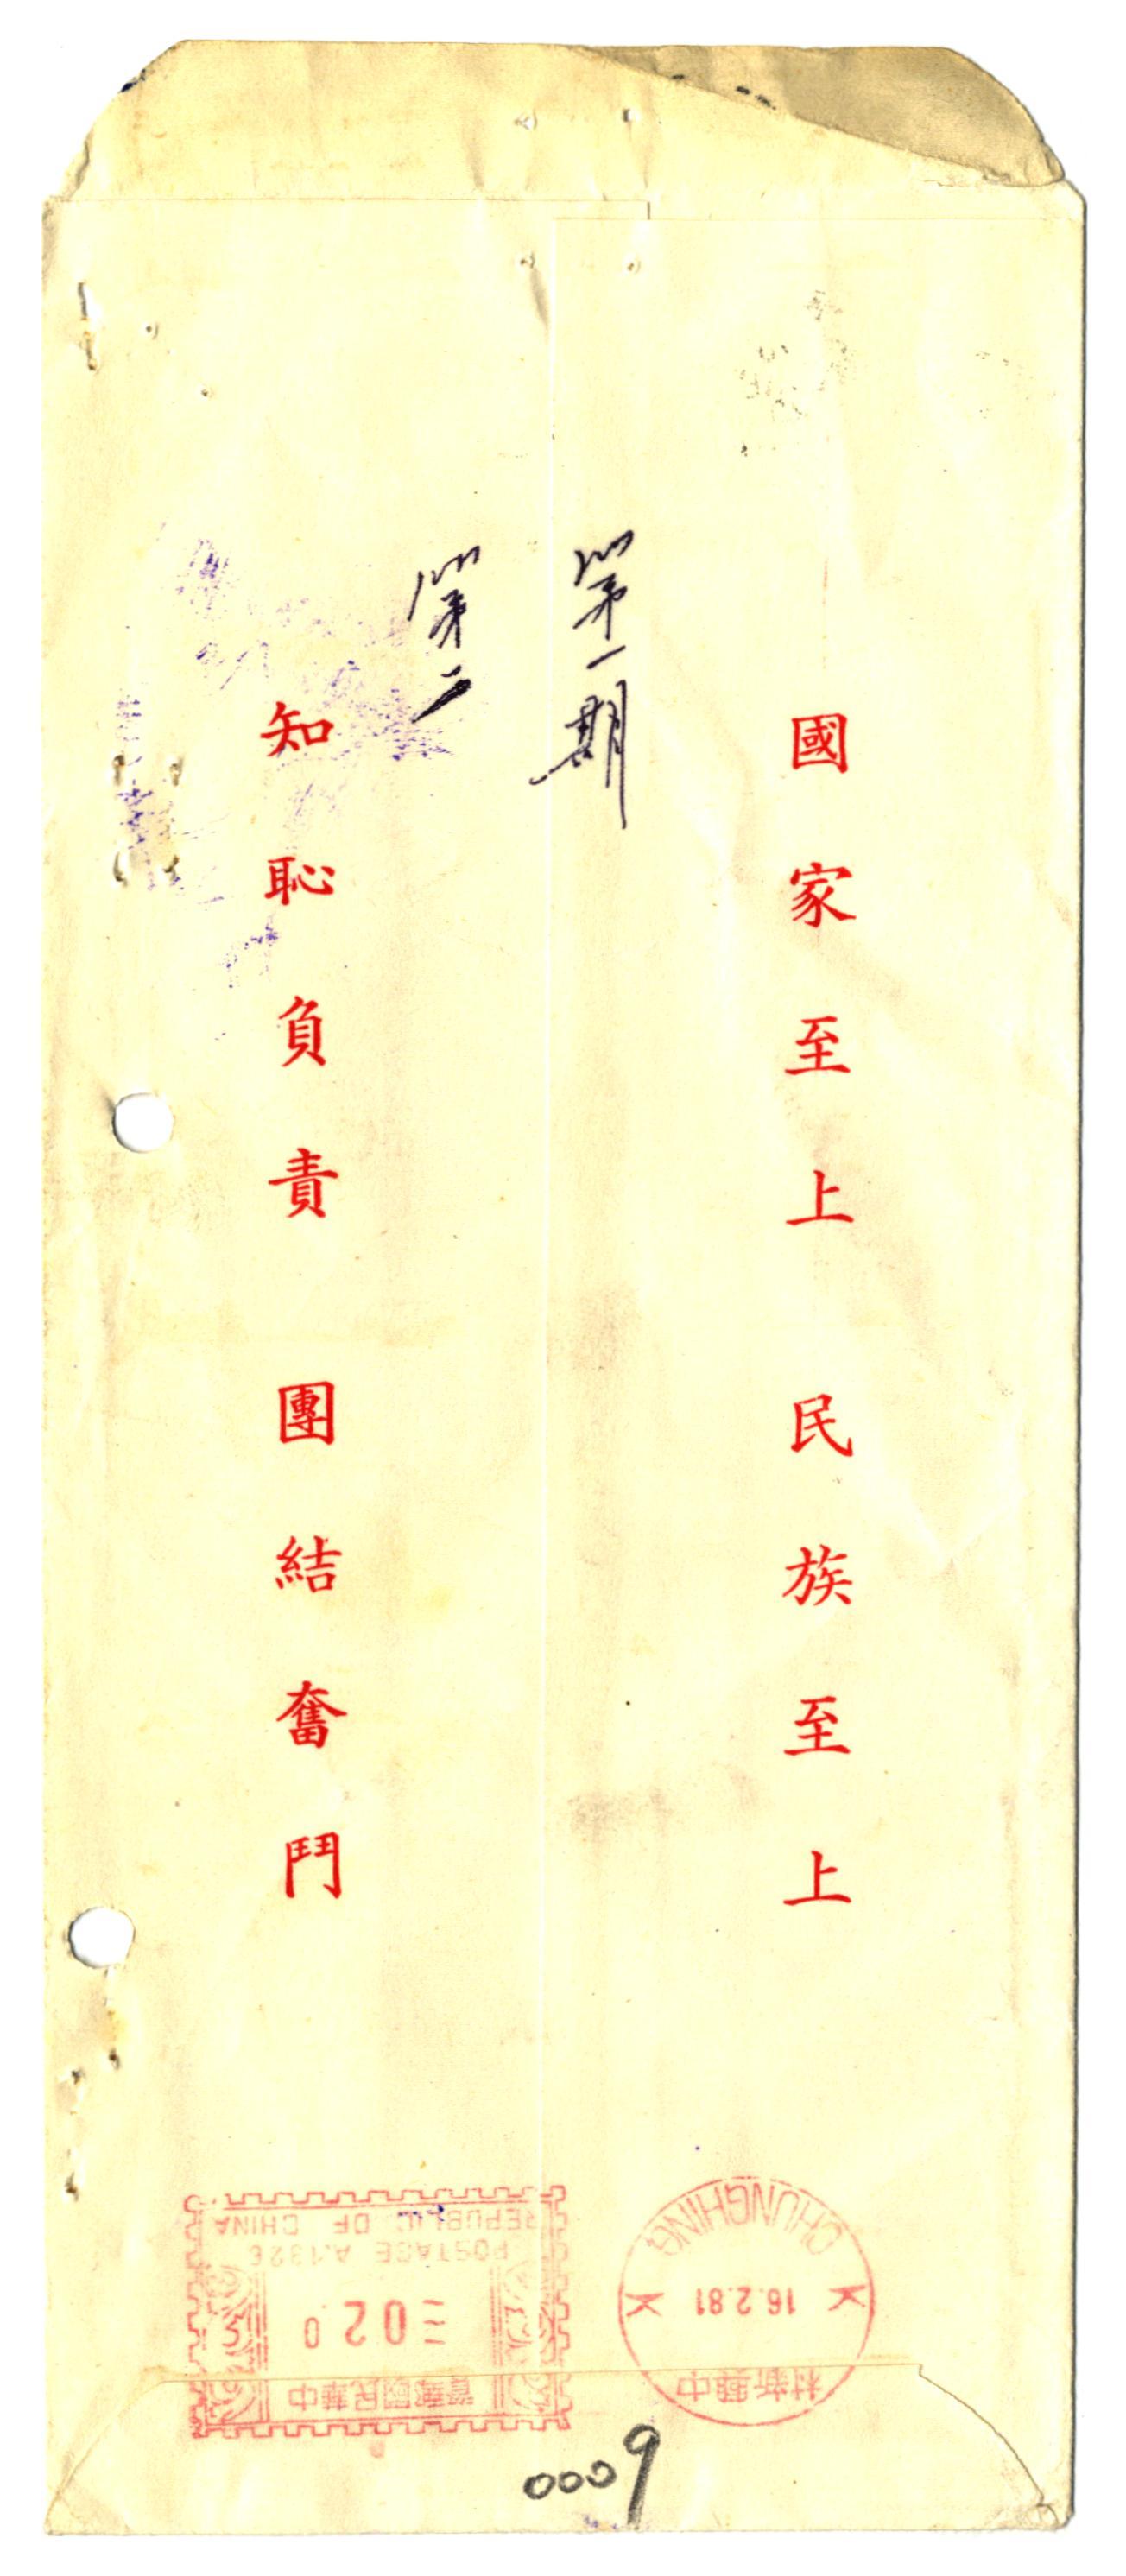 國家至上 民族至上
第一期
第二
知恥負責 團結奮鬥
中興新村
16.2.81
CHUNGHING
中華民國郵資
020
POSTAGE A.1326
REPUBLIC OF CHINA
0009